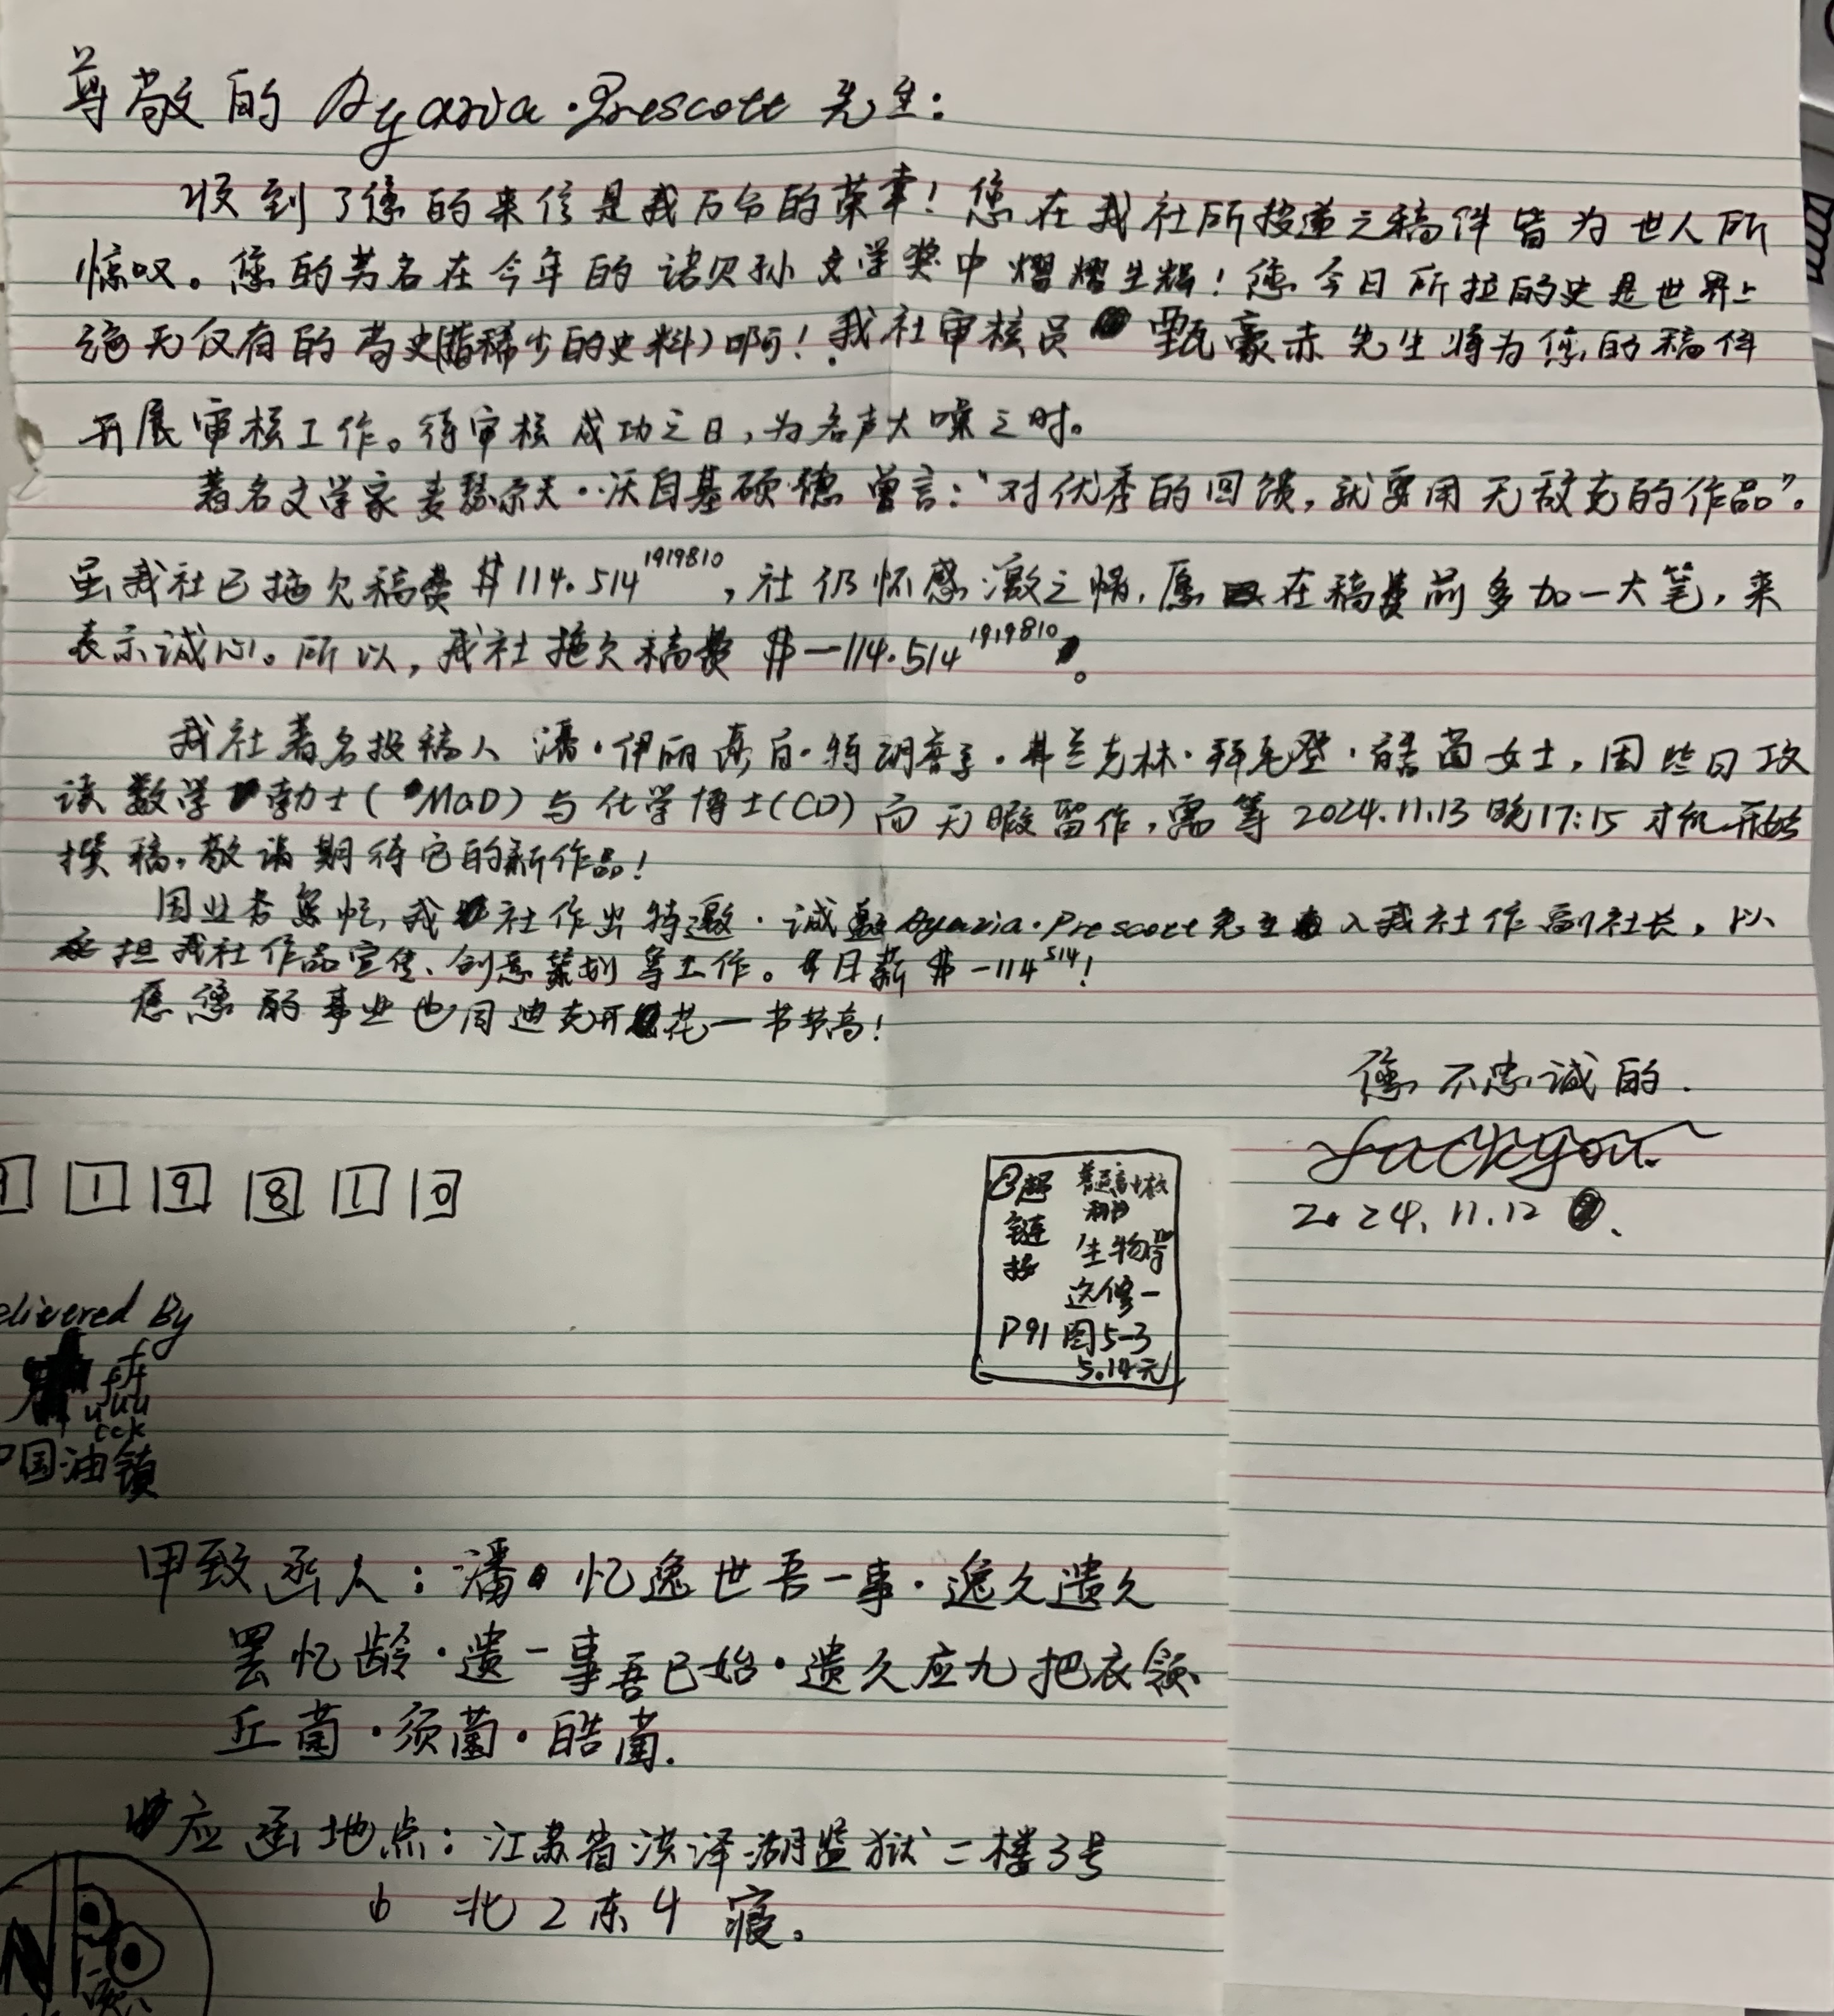 尊敬的 Ayaria·Prescott 先生:
收到了您的来信是我万分的荣幸!您在我社所投递之稿件皆为世人所
惊叹。您的芳名在今年的诺贝孙文学奖中熠熠生辉!您今日所拉的史是世界上
绝无仅有的 (指稀少的史料)啊!我社审核员 甄豪赤先生将为您的稿件
开展审核工作。待审核成功之日,为名声大噪之时。
著名文学家麦瑟尔夫··沃自基硕德曾言:“对优秀的回馈,就要用无敌克的作品”。
虽我社已拖欠稿费$114.514^1919810,社仍怀感激之情,愿在稿费前多加一大笔,来
表示诚心。所以,我社拖欠稿费 $-114.514^1919810。
我社著名投稿人 潘·伊丽 ·弗兰克林·拜 登·皓菌女士,因些日攻
读数学勃士(MaD)与化学博士(CD)而无暇留作,需等2024.11.13晚17:15才能开始
撰稿,敬请期待它的新作品!
因业务 忙,我社作出特邀·诚邀Ayaria·Prescott先生入我社作副社长,以
承担我社作品宣传、创意策划等工作。日薪$-114^514!
愿您的事业也同迪克开花一书节高!
您不忠诚的.
Jackyou.
2024.11.12
1 9 8 1 0
超链接
普通高中教科书
生物学
选修一
P91 图5-3
5.14元
elivered By
uuu
cck
中国油镇
甲致函人:潘·忆逸世吾一事·逸久遗久
罢忆龄·遗一事吾已始·遗久应九把衣领
丘菌·须菌·皓菌.
应函地点:江苏省洪泽湖监狱二楼3号
北2东4寝。
N